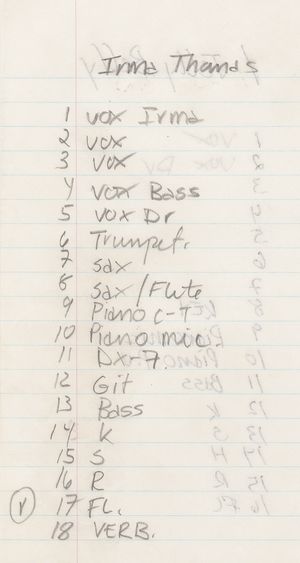 Irma Thomas
1 VOX Irma
2 VOX
3 VOX
4 VOX Bass
5 VOX Dr
6 Trumpet.
7 Sax
8 Sax/Flute
9 Piano C-T
10 Piano mic
11 DX-7
12 Git
13 Bass
14 K
15 S
16 R
(r) 17 FL.
18 VERB.